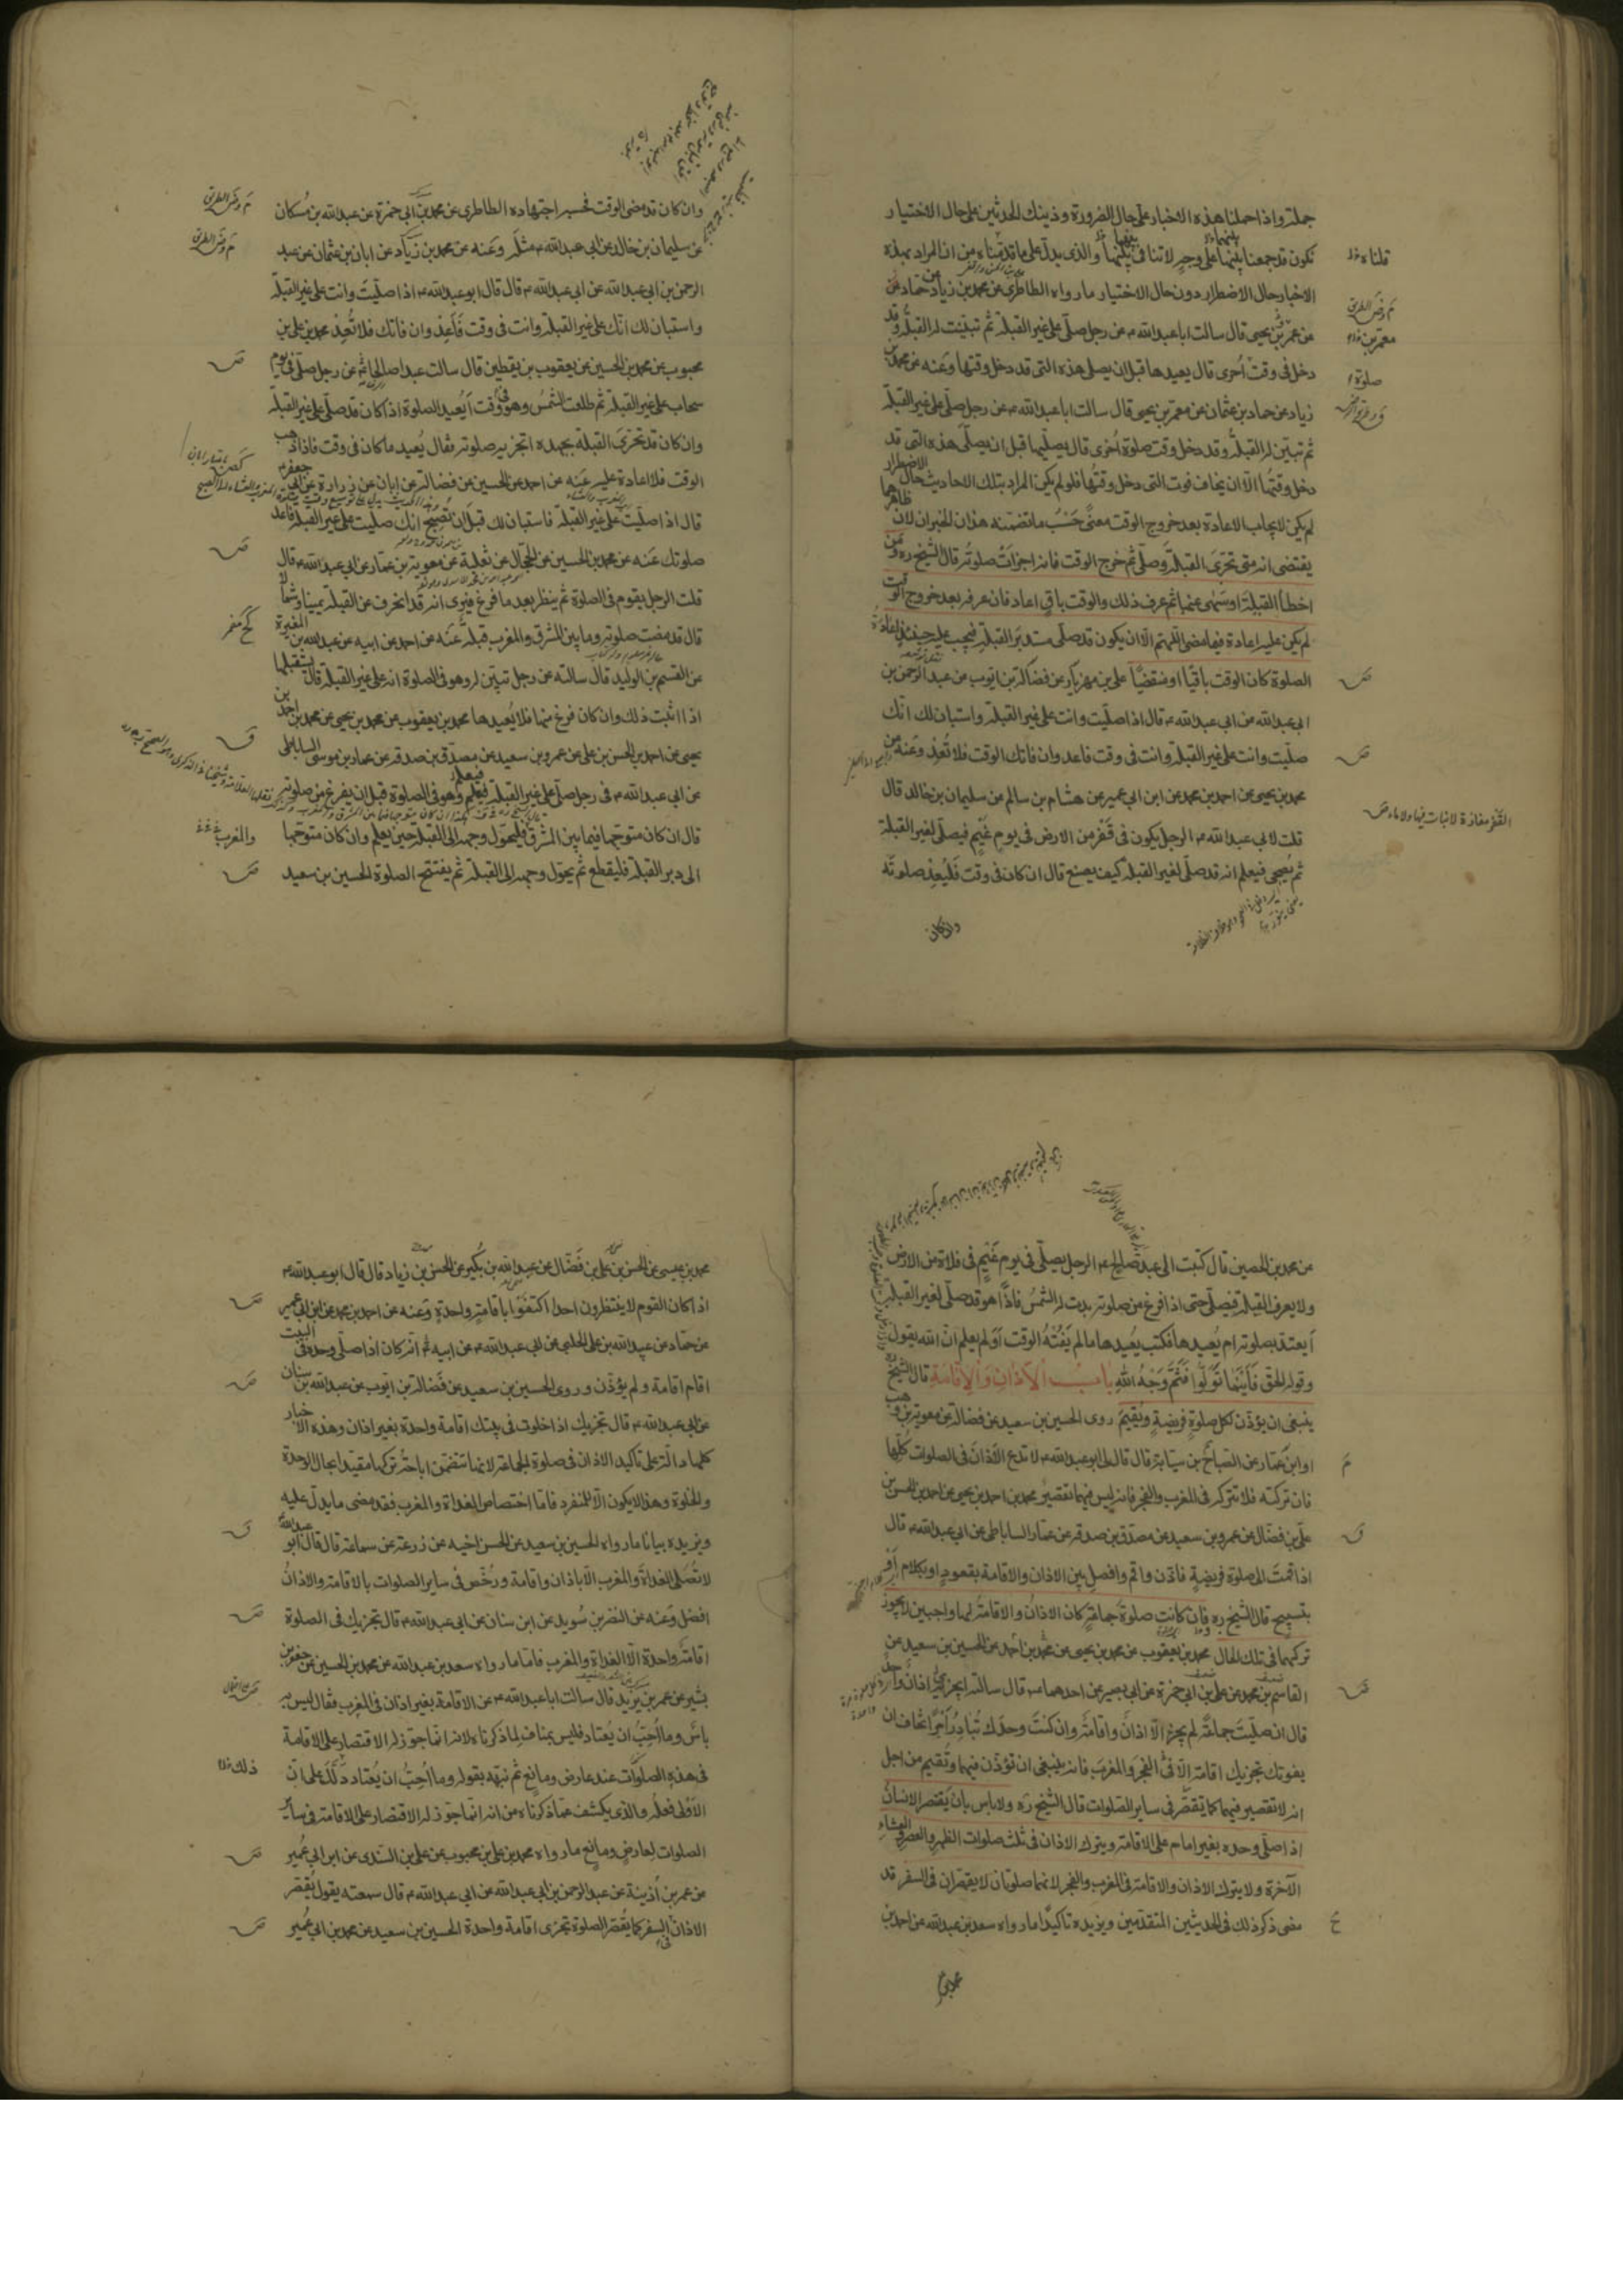 جملة واذا حملنا هذه الاخبار على حال الضرورة وذينك الحديثين على حال الاختيار
نكون قد جمعنا بينها على وجه لا تنافى بينها والذى يدل على ما قدمناه من ان المراد بهذه
الاخبار حال الاضطرار دون حال الاختيار ما رواه الطاطرى عن محمد بن زياد عن حماد عن
عن عمر بن يحيى قال سالت ابا عبد الله ع عن رجل صلى على غير القبلة ثم تبينت له القبلة وقد
دخل فى وقت اخرى قال يعيدها قبل ان يصلى هذه التى قد دخل وقتها وعنه عن محمد بن
زياد عن حماد بن عثمان عن معمر بن يحيى قال سالت ابا عبد الله ع عن رجل صلى على غير القبلة
ثم تبين له القبلة وقد دخل وقت صلوة اخرى قال يصليها قبل ان يصلى هذه التى قد
دخل وقتها الا ان يخاف فوت التى دخل وقتها فلو لم يكن المراد بتلك الاحاديث حال الاضطرار
لم يكن لايجاب الاعادة بعد خروج الوقت معنى حسب ما تضمنه هذان الخبران لان ظاهرها
يقتضى انه متى تحرى القبلة وصلى ثم خرج الوقت فانه اجزات صلوته قال الشيخ ره ومن
اخطا القبلة او سهى عنها ثم عرف ذلك والوقت باق اعاد فان عرفه بعد خروج الوقت
لم يكن عليه اعادة فيما مضى اللهم الا ان يكون قد صلى مستدبر القبلة فيجب عليه حينئذ اعادة
الصلوة كان الوقت باقيا او منقضيا على بن مهزيار عن فضالة بن ايوب عن عبد الرحمن بن
ابى عبد الله عن ابى عبد الله ع قال اذا صليت وانت على غير القبلة واستبان لك انك
صليت وانت على غير القبلة وانت فى وقت فاعد وان فاتك الوقت فلا تعد وعنه عن
محمد بن يحيى عن احمد بن محمد عن ابن ابى عمير عن هشام بن سالم عن سليمان بن خالد قال
قلت لابى عبد الله ع الرجل يكون فى قفر من الارض فى يوم غيم فيصلى لغير القبلة
ثم يصحى فيعلم انه قد صلى لغير القبلة كيف يصنع قال ان كان فى وقت فليعد صلوته
وان كان
قلناه
معمر بن
صلوة
القفر مفازة لا نبات فيها ولا ماء ص
وان كان قد مضى الوقت فحسبه اجتهاده الطاطرى عن محمد بن ابى حمزة عن عبد الله بن مسكان
عن سليمان بن خالد عن ابى عبد الله ع مثله وعنه عن محمد بن زياد عن ابان بن عثمان عن عبد
الرحمن بن ابى عبد الله عن ابى عبد الله ع قال قال ابو عبد الله ع اذا صليت وانت على غير القبلة
واستبان لك انك على غير القبلة وانت فى وقت فاعد وان فاتك فلا تعد محمد بن على بن
محبوب عن محمد بن الحسين عن يعقوب بن يقطين قال سالت عبدا صالحا عن رجل صلى فى يوم
سحاب على غير القبلة ثم طلعت الشمس وهو فى وقت ايعيد الصلوة اذا كان قد صلى على غير القبلة
وان كان قد تحرى القبلة بجهده اتجزيه صلوته فقال يعيد ما كان فى وقت فاذا ذهب
الوقت فلا اعادة عليه عنه عن احمد عن الحسين عن فضالة عن ابان عن زرارة عن ابى جعفر ع
قال اذا صليت على غير القبلة فاستبان لك قبل ان تصبح انك صليت على غير القبلة فاعد
صلوتك عنه عن محمد بن الحسين عن الحجال عن ثعلبة عن معوية بن عمار عن ابى عبد الله ع قال
قلت الرجل يقوم فى الصلوة ثم ينظر بعد ما فرغ فيرى انه قد انحرف عن القبلة يمينا وشمالا
قال قد مضت صلوته وما بين المشرق والمغرب قبلة عنه عن احمد عن ابيه عن عبد الله بن المغيرة
عن القسم بن الوليد قال سالته عن رجل تبين له وهو فى الصلوة انه على غير القبلة قال يستقبلها
اذا اثبت ذلك وان كان فرغ منها فلا يعيدها محمد بن يعقوب عن محمد بن يحيى عن محمد بن احمد بن
يحيى عن احمد بن الحسن بن على عن عمرو بن سعيد عن مصدق بن صدقه عن عمار بن موسى الساباطى
عن ابى عبد الله ع فى رجل صلى على غير القبلة فيعلم وهو فى الصلوة قبل ان يفرغ من صلوته
قال ان كان متوجها فيما بين المشرق والمغرب فليحول وجهه الى القبلة حين يعلم وان كان متوجها
الى دبر القبلة فليقطع ثم يحول وجهه الى القبلة ثم يفتتح الصلوة الحسين بن سعيد
عن محمد بن الحصين قال كتبت الى عبد صالح ع الرجل يصلى فى يوم غيم فى فلاة من الارض
ولا يعرف القبلة فيصلى حتى اذا فرغ من صلوته بدت له الشمس فاذا هو قد صلى لغير القبلة
ايعتد بصلوته ام يعيدها فكتب يعيدها ما لم يفته الوقت اولم يعلم ان الله يقول
وقوله الحق فاينما تولوا فثم وجه الله باب الاذان والاقامة قال الشيخ ره
ينبغى ان يؤذن لكل صلوة فريضة ويقيم روى الحسين بن سعيد عن فضالة عن معوية بن وهب
او ابن عمار عن الصباح بن سيابة قال قال لى ابو عبد الله ع لا تدع الاذان فى الصلوات كلها
فان تركته فلا تتركه فى المغرب والفجر فانه ليس فيهما تقصير محمد بن احمد بن يحيى عن احمد بن الحسن بن
على بن فضال عن عمرو بن سعيد عن مصدق بن صدقه عن عمار الساباطى عن ابى عبد الله ع قال
اذا قمت الى صلوة فريضة فاذن واقم وافصل بين الاذان والاقامة بقعود او بكلام او
بتسبيح قال الشيخ ره وان كانت صلوة جماعة كان الاذان والاقامة لها واجبين لا يجوز
تركهما فى تلك الحال محمد بن يعقوب عن محمد بن يحيى عن محمد بن احمد عن الحسين بن سعيد عن
القاسم بن محمد عن على بن ابى حمزة عن ابى بصير عن احدهما ع قال سالته ايجزى اذان واحد
قال ان صليت جماعة لم يجز الا اذان واقامة وان كنت وحدك تبادر امرا تخاف ان
يفوتك تجزيك اقامة الا فى الفجر والمغرب فانه ينبغى ان تؤذن فيهما وتقيم من اجل
انه لا تقصير فيهما كما تقصر فى ساير الصلوات قال الشيخ ره ولا باس بان يقتصر الانسان
اذا صلى وحده بغير امام على الاقامة ويترك الاذان فى ثلث صلوات الظهر والعصر والعشاء
الاخرة ولا يترك الاذان والاقامة فى المغرب والفجر لانهما صلوتان لا يقصران فى السفر قد
مضى ذكر ذلك فى الحديثين المتقدمين ويزيده تاكيدا ما رواه سعد بن عبد الله عن احمد بن
محمد بن
محمد بن عيسى عن الحسن بن على بن فضال عن عبد الله بن بكير عن الحسن بن زياد قال قال ابو عبد الله ع
اذا كان القوم لا ينتظرون احدا اكتفوا باقامة واحدة وعنه عن احمد بن محمد عن ابن ابى عمير
عن حماد عن عبيد الله بن على الحلبى عن ابى عبد الله ع عن ابيه ع انه كان اذا صلى وحده فى البيت
اقام اقامة ولم يؤذن وروى الحسين بن سعيد عن فضالة بن ايوب عن عبد الله بن سنان
عن ابى عبد الله ع قال تجزيك اذا خلوت فى بيتك اقامة واحدة بغير اذان وهذه الاخبار
كلها دالة على تاكيد الاذان فى صلوة الجماعة لانها تتضمن اباحة تركها مقيدا بحال الوحدة
والخلوة وهذا لا يكون الا للمنفرد فاما اختصاص الغداة والمغرب فقد مضى ما يدل عليه
ويزيده بيانا ما رواه الحسين بن سعيد عن الحسن اخيه عن زرعة عن سماعة قال قال ابو عبد الله ع
لا تصلى الغداة والمغرب الا باذان واقامة ورخص فى ساير الصلوات بالاقامة والاذان
افضل وعنه عن النضر بن سويد عن ابن سنان عن ابى عبد الله ع قال تجزيك فى الصلوة
اقامة واحدة الا الغداة والمغرب فاما ما رواه سعد بن عبد الله عن محمد بن الحسين عن جعفر بن
بشير عن عمر بن يزيد قال سالت ابا عبد الله ع عن الاقامة بغير اذان فى المغرب فقال ليس به
باس وما احب ان يعتاد فليس بمناف لما ذكرناه لانه انما جوز له الاقتصار على الاقامة
فى هذه الصلوات عند عارض ومانع ثم نبه بقوله وما احب ان يعتاد ذلك على ان
الاولى فعله والذى يكشف عما ذكرناه من انه انما جوز له الاقتصار على الاقامة فى ساير
الصلوات لعارض ومانع ما رواه محمد بن على بن محبوب عن على بن السندى عن ابن ابى عمير
عن عمر بن اذينة عن عبد الرحمن بن ابى عبد الله عن ابى عبد الله ع قال سمعته يقول يقصر
الاذان فى السفر كما يقصر الصلوة تجزى اقامة واحدة الحسين بن سعيد عن محمد بن ابى عمير